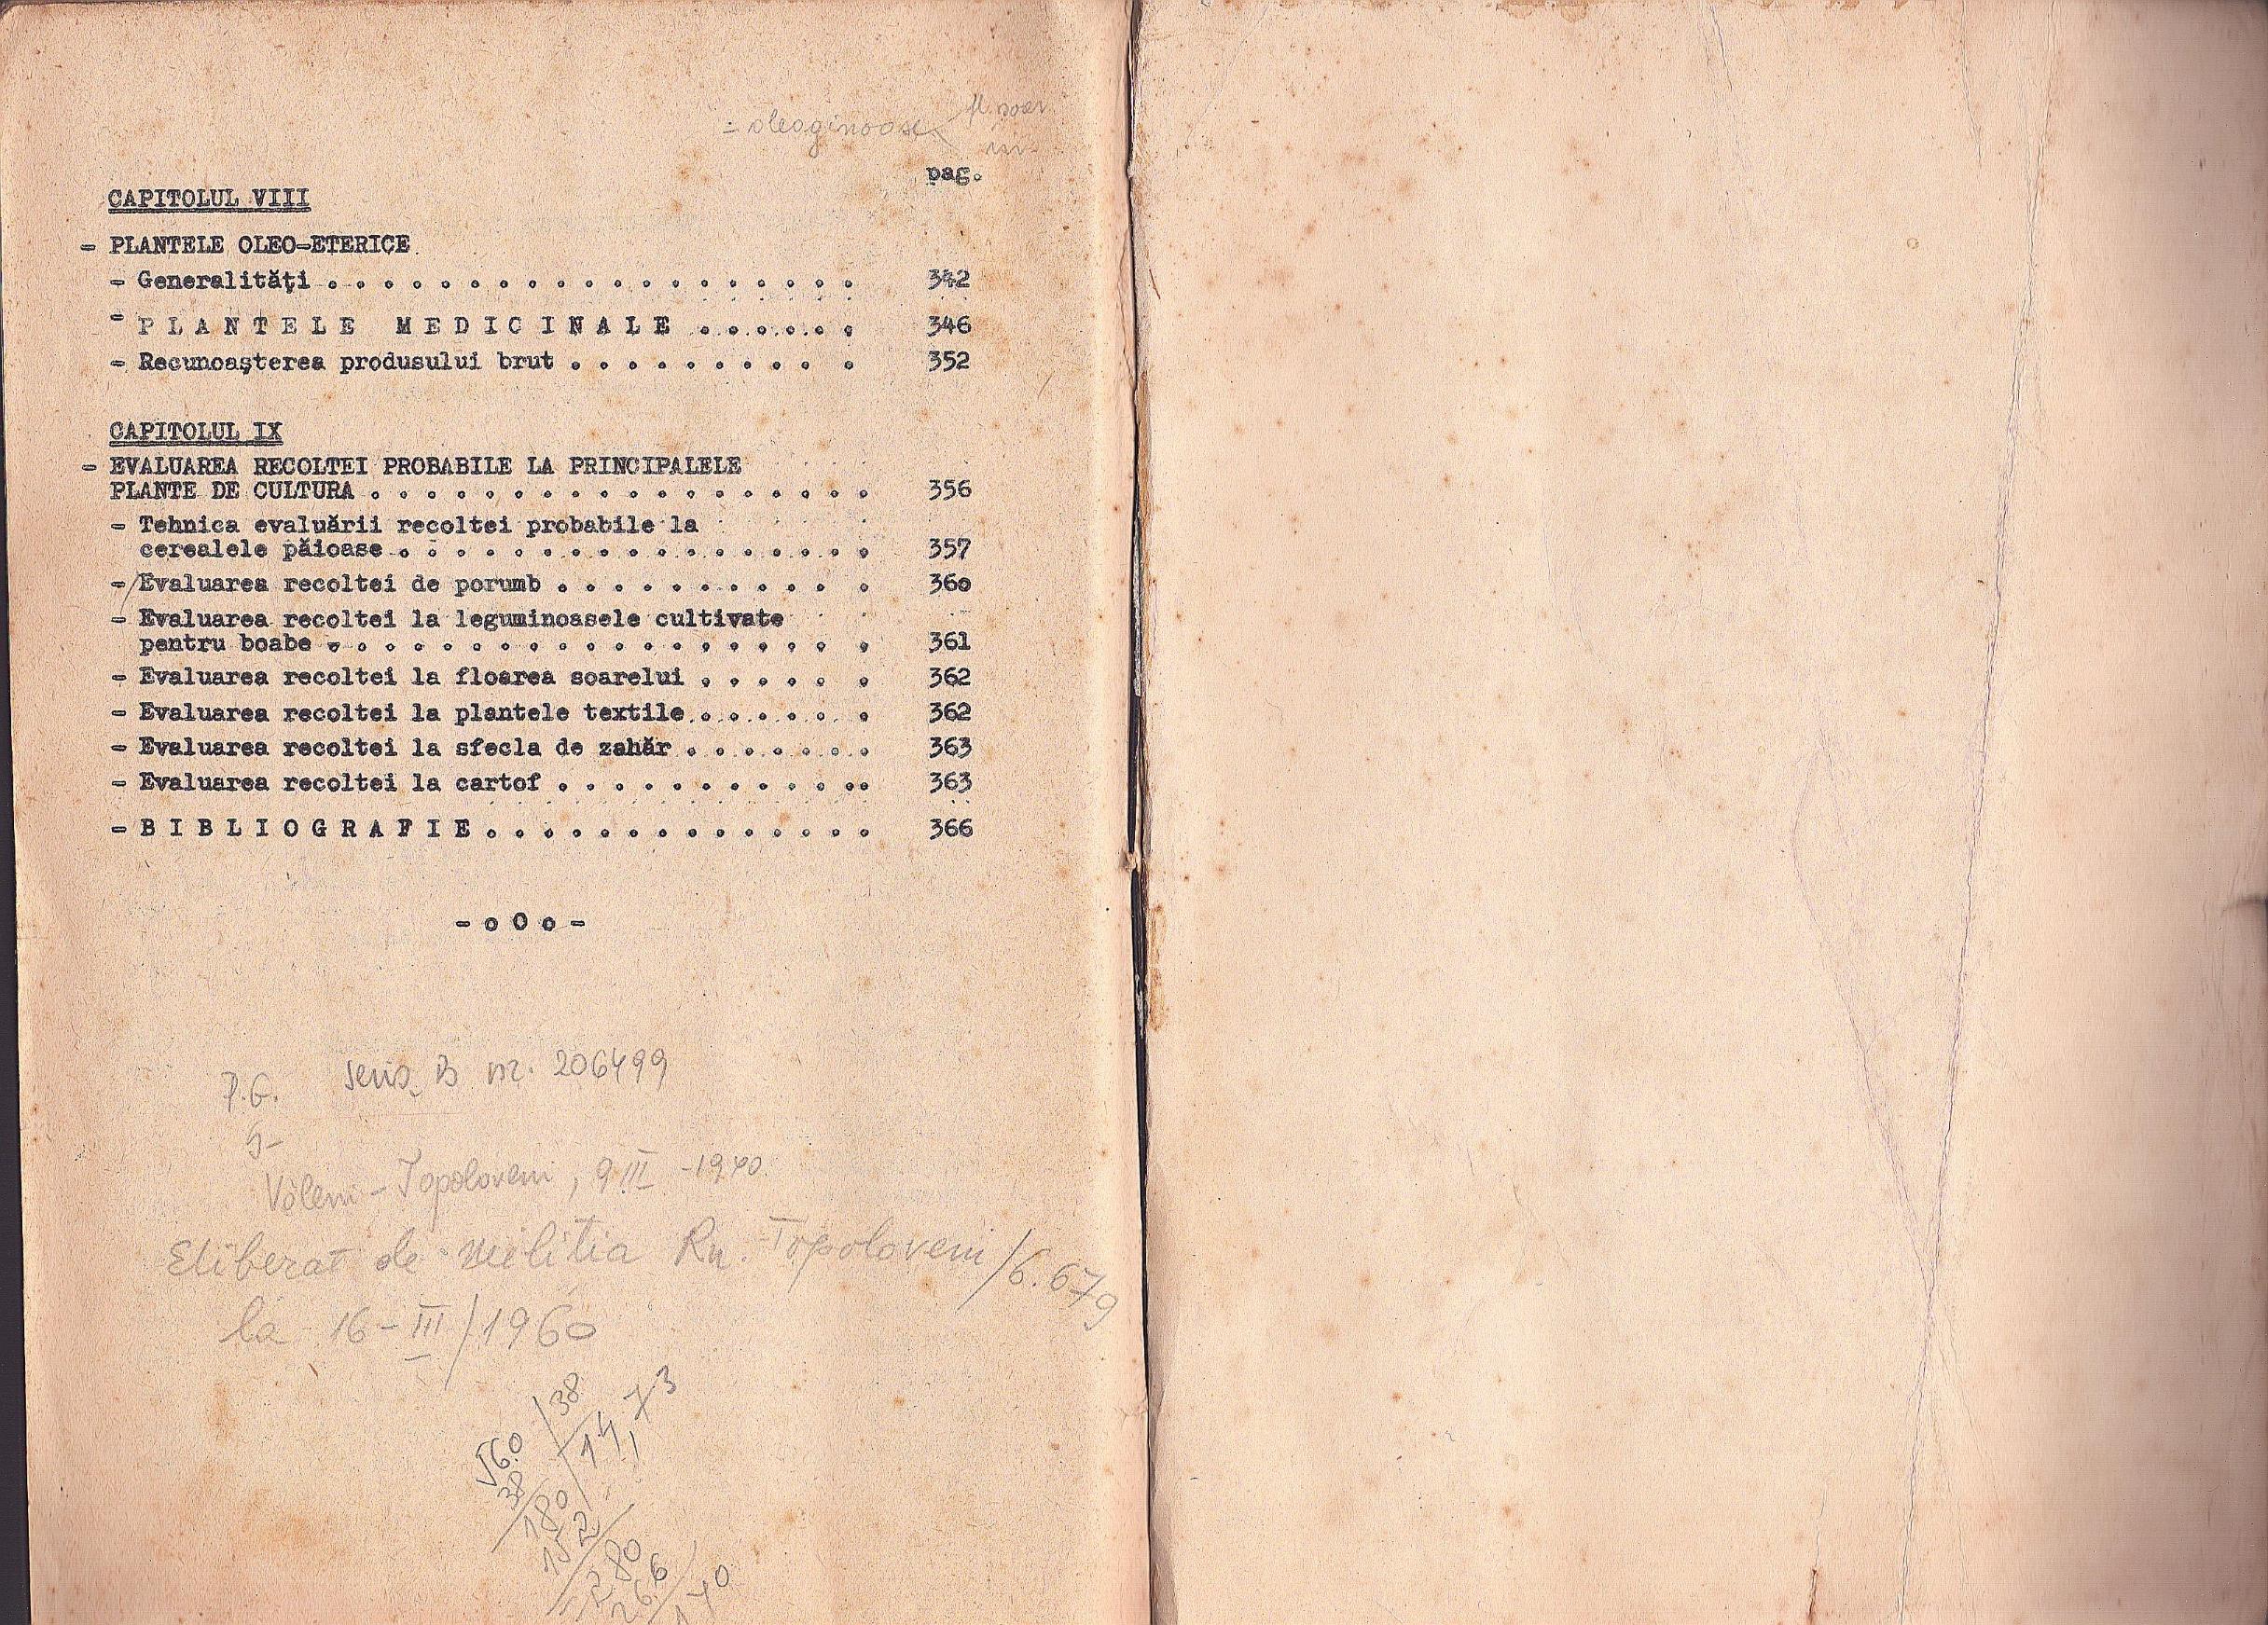 = oleaginoase
pag.
CAPITOLUL VIII
- PLANTELE OLEO-ETERICE
- Generalități . . . . . . . . . . . . . . . . . . . 342
- P L A N T E L E   M E D I C I N A L E . . . . . . 346
- Recunoașterea produsului brut . . . . . . . . . . 352
CAPITOLUL IX
- EVALUAREA RECOLTEI PROBABILE LA PRINCIPALELE
PLANTE DE CULTURA . . . . . . . . . . . . . . . . . . 356
- Tehnica evaluării recoltei probabile la
cerealele păioase . . . . . . . . . . . . . . . . . 357
- Evaluarea recoltei de porumb . . . . . . . . . . . 360
- Evaluarea recoltei la leguminoasele cultivate
pentru boabe . . . . . . . . . . . . . . . . . . . 361
- Evaluarea recoltei la floarea soarelui . . . . . . 362
- Evaluarea recoltei la plantele textile . . . . . . . 362
- Evaluarea recoltei la sfecla de zahăr . . . . . . . 363
- Evaluarea recoltei la cartof . . . . . . . . . . . . 363
- B I B L I O G R A F I E . . . . . . . . . . . . . . 366
- o O o -
seria B nr. 206499
Topoloveni, 9 III - 1940
Eliberat de Militia Rn. Topoloveni / 6.679
la 16 - III / 1960
560 / 38
38 14,73
180
152
280
266
140